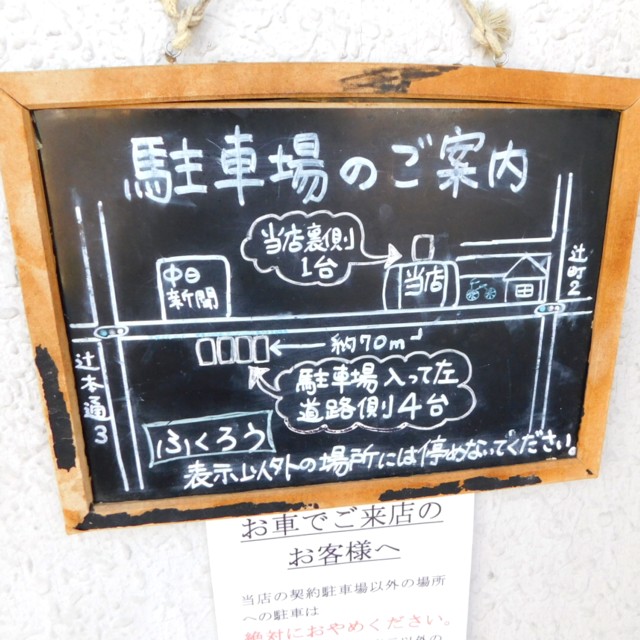 駐車場のご案内
当店裏側
1台
辻町2
中日
新聞
当店
約70m
辻本通3
駐車場入って左
道路側4台
ふくろう
表示以外の場所には停めないでください。
お車でご来店の
お客様へ
当店の契約駐車場以外の場所
への駐車は
絶対におやめください。